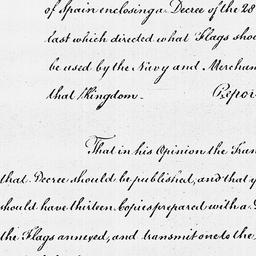 of Spain enclosing a Decree of the 28
last which directed what Flags shou
be used by the Navy and Merchan
that Kingdom. Repor
That in his Opinion the Tran
that Decree should be published, and that y
should have thirteen Copies prepared with a
the Flags annexed, and transmit one to the